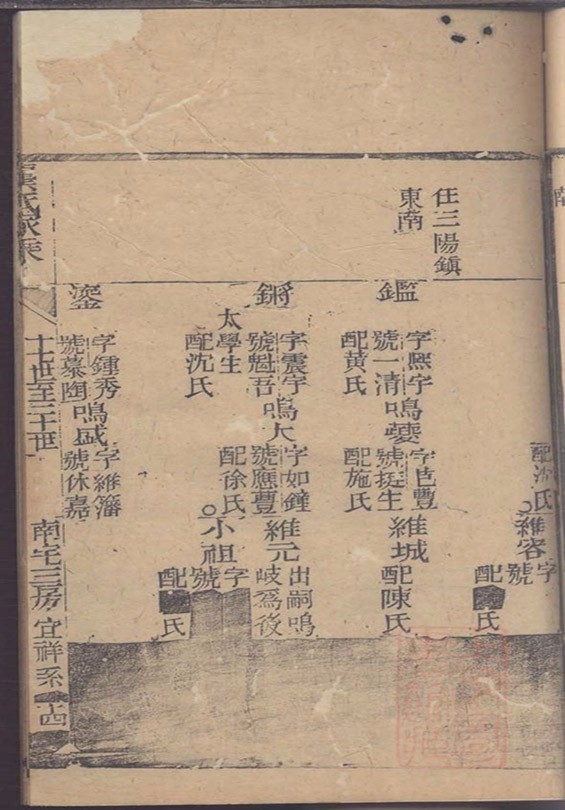 南
配沈氏
維容
字
號
配
氏
住三陽鎮
東南
鑑
字熙宇
號一清
配黃氏
鳴夔
字芑豐
號挺生
配施氏
維城
配陳氏
鏘
字震宇
號魁吾
太學生
配沈氏
鳴大
字如鐘
號應豐
配徐氏
維元
出嗣鳴
岐為後
小祖
字
號
配
氏
鎏
字鍾秀
號慕陶
鳴盛
字維藩
號休嘉
氏家乘
十世至二十世
南宅三房
宜祥系
十四